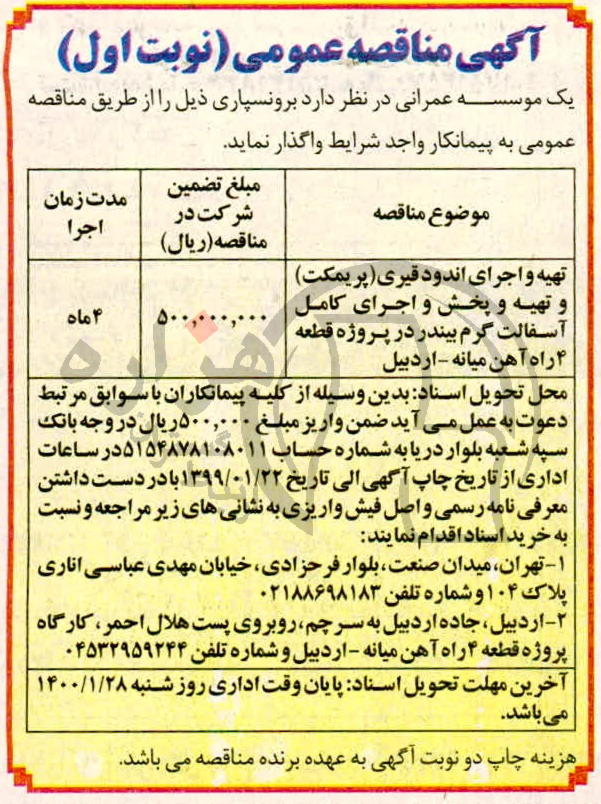 آگهی مناقصه عمومی (نوبت اول)
یک موسسه عمرانی در نظر دارد برونسپاری ذیل را از طریق مناقصه
عمومی به پیمانکار واجد شرایط واگذار نماید.
موضوع مناقصه
مبلغ تضمین
شرکت در
مناقصه(ریال)
مدت زمان
اجرا
تهیه و اجرای اندود قیری(پریمکت)
و تهیه و پخش و اجرای کامل
آسفالت گرم بیندر در پروژه قطعه
۴ راه آهن میانه -اردبیل
۵۰۰,۰۰۰,۰۰۰
۴ماه
محل تحویل اسناد: بدین وسیله از کلیه پیمانکاران با سوابق مرتبط
دعوت به عمل می آید ضمن واریز مبلغ ۵۰۰,۰۰۰ریال در وجه بانک
سپه شعبه بلوار دریا به شماره حساب ۵۱۵۴۸۷۸۱۰۸۰۱۱در ساعات
اداری از تاریخ چاپ آگهی الی تاریخ ۱۳۹۹/۰۱/۲۲با در دست داشتن
معرفی نامه رسمی و اصل فیش واریزی به نشانی های زیر مراجعه و نسبت
به خرید اسناد اقدام نمایند:
۱-تهران، میدان صنعت، بلوار فرحزادی، خیابان مهدی عباسی اناری
پلاک ۱۰۴ و شماره تلفن ۰۲۱۸۸۶۹۸۱۸۳
۲-اردبیل، جاده اردبیل به سرچم، روبروی پست هلال احمر، کارگاه
پروژه قطعه ۴ راه آهن میانه -اردبیل و شماره تلفن ۰۴۵۳۲۹۵۹۲۴۴
آخرین مهلت تحویل اسناد: پایان وقت اداری روز شنبه ۱۴۰۰/۱/۲۸
می‌باشد.
هزینه چاپ دو نوبت آگهی به عهده برنده مناقصه می باشد.